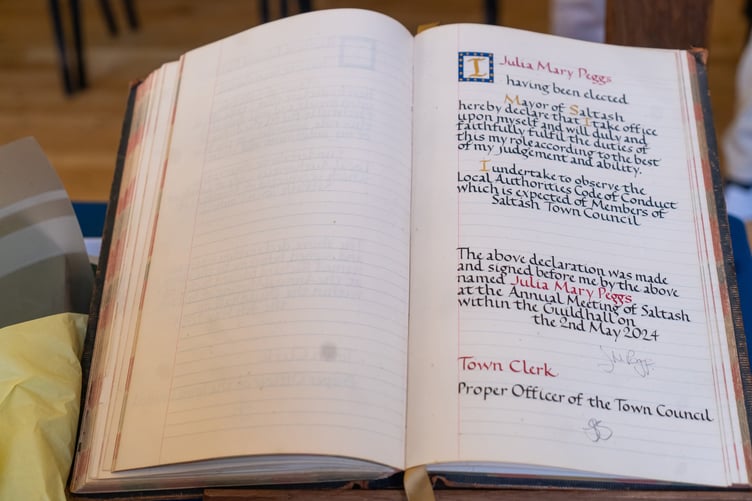 I Julia Mary Peggs
having been elected
Mayor of Saltash
hereby declare that I take office
upon myself and will duly and
faithfully fulfil the duties of
this my role according to the best
of my judgement and ability.
I undertake to observe the
Local Authorities Code of Conduct
which is expected of Members of
Saltash Town Council
The above declaration was made
and signed before me by the above
named Julia Mary Peggs
at the Annual Meeting of Saltash
within the Guildhall on
the 2nd May 2024
Town Clerk
Proper Officer of the Town Council